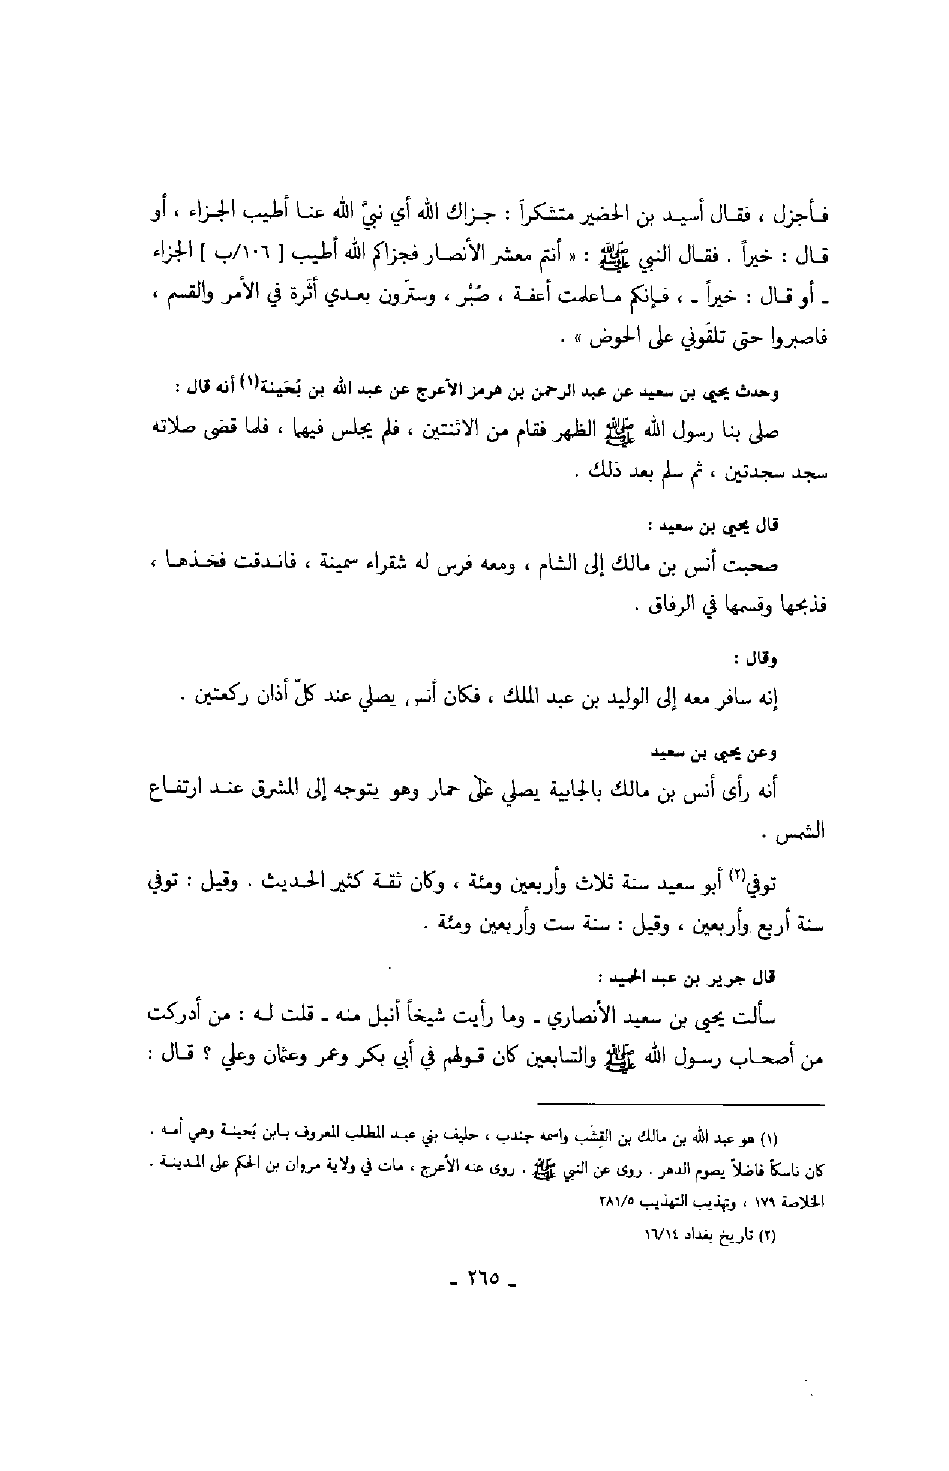 فأجزل ، فقال أسيد بن الحضير متشكراً : جزاك الله أي نبيَّ الله عنا أطيب الجزاء ، أو
قال : خيراً . فقال النبي ﷺ : « أنتم معشر الأنصار فجزاكم الله أطيب [ ١٠٦/ب ] الجزاء
ـ أو قال : خيراً ـ ، فإنكم ماعلمت أعفة ، صُبُر ، وسترَون بعدي أثَرة في الأمر والقسم ،
فاصبروا حتى تلقَوني على الحوض » .
وحدث يحيى بن سعيد عن عبد الرحمن بن هرمز الأعرج عن عبد الله بن بُحَينة(١) أنه قال :
صلى بنا رسول الله ﷺ الظهر فقام من الاثنتين ، فلم يجلس فيهما ، فلما قضى صلاته
سجد سجدتين ، ثم سلم بعد ذلك .
قال يحيى بن سعيد :
صحبت أنس بن مالك إلى الشام ، ومعه فرس له شقراء سمينة ، فاندقت فخذها ،
فذبحها وقسمها في الرفاق .
وقال :
إنه سافر معه إلى الوليد بن عبد الملك ، فكان أنس يصلي عند كلّ أذان ركعتين .
وعن يحيى بن سعيد
أنه رأى أنس بن مالك بالجابية يصلي على حمار وهو يتوجه إلى المشرق عند ارتفاع
الشمس .
توفي(٢) أبو سعيد سنة ثلاث وأربعين ومئة ، وكان ثقة كثير الحديث . وقيل : توفي
سنة أربع وأربعين ، وقيل : سنة ست وأربعين ومئة .
قال جرير بن عبد الحميد :
سألت يحيى بن سعيد الأنصاري ـ وما رأيت شيخاً أنبل منه ـ قلت له : من أدركت
من أصحاب رسول الله ﷺ والتابعين كان قولهم في أبي بكر وعمر وعثمان وعلي ؟ قال :
(١) هو عبد الله بن مالك بن القِشْب واسمه جندب ، حليف بني عبد المطلب المعروف بابن بُحينة وهي أمه .
كان ناسكاً فاضلاً يصوم الدهر . روى عن النبي ﷺ . روى عنه الأعرج ، مات في ولاية مروان بن الحكم على المدينة .
الخلاصة ١٧٩ ، وتهذيب التهذيب ٢٨١/٥
(٢) تاريخ بغداد ١٦/١٤
ـ ٢٦٥ ـ